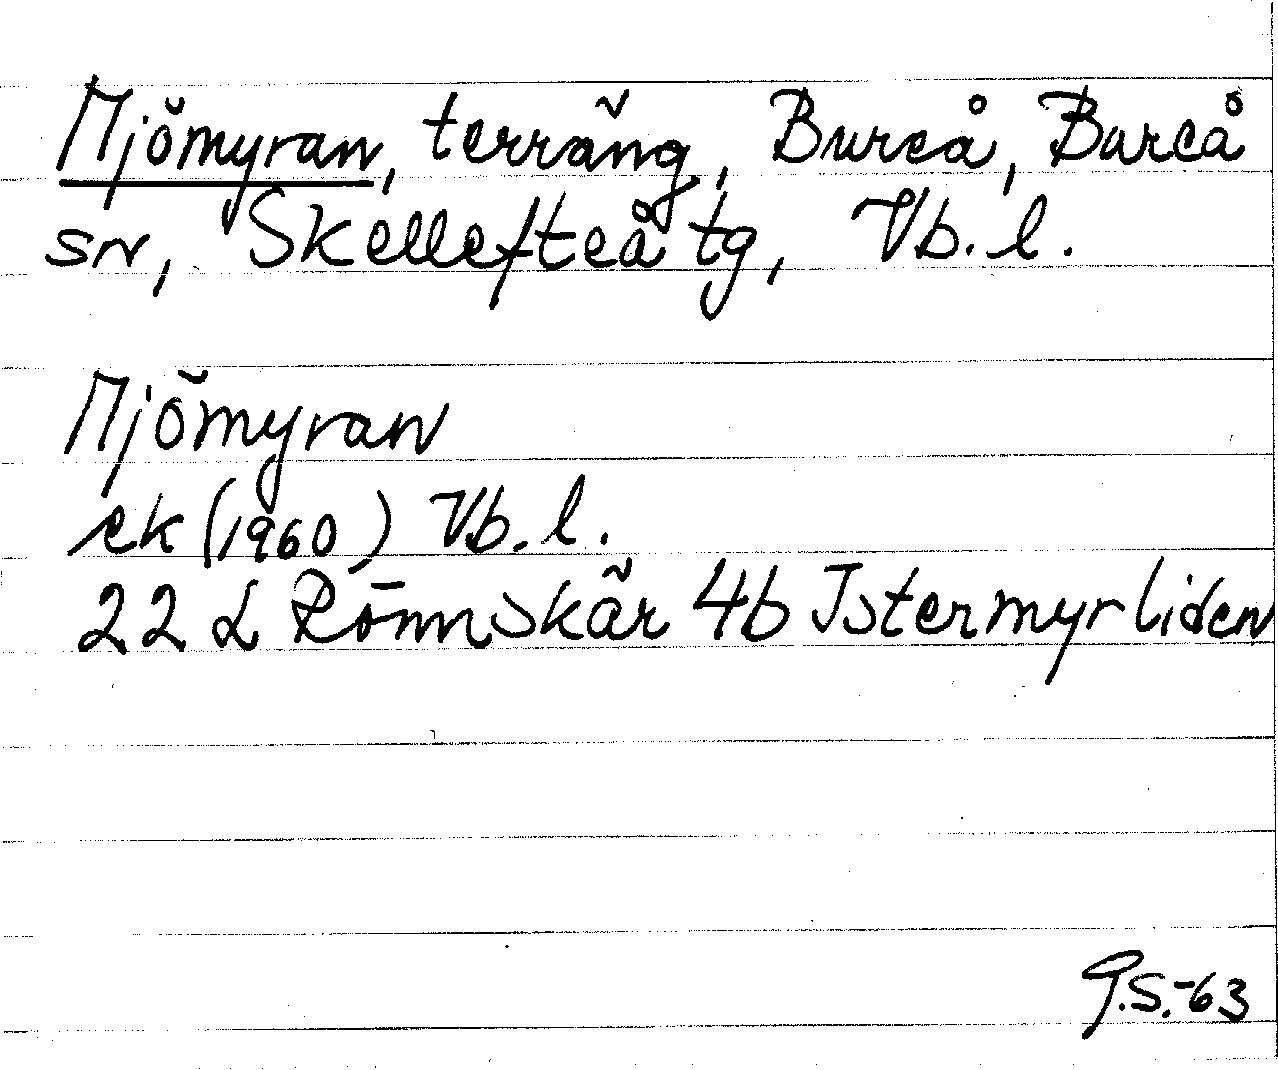 Mjömyran, terräng, Bureå, Bureå
sn, Skellefteå tg, Vb. l.
Mjömyran
ek (1960) Vb. l.
22 L Rönnskär 4b Istermyrliden
S.-63